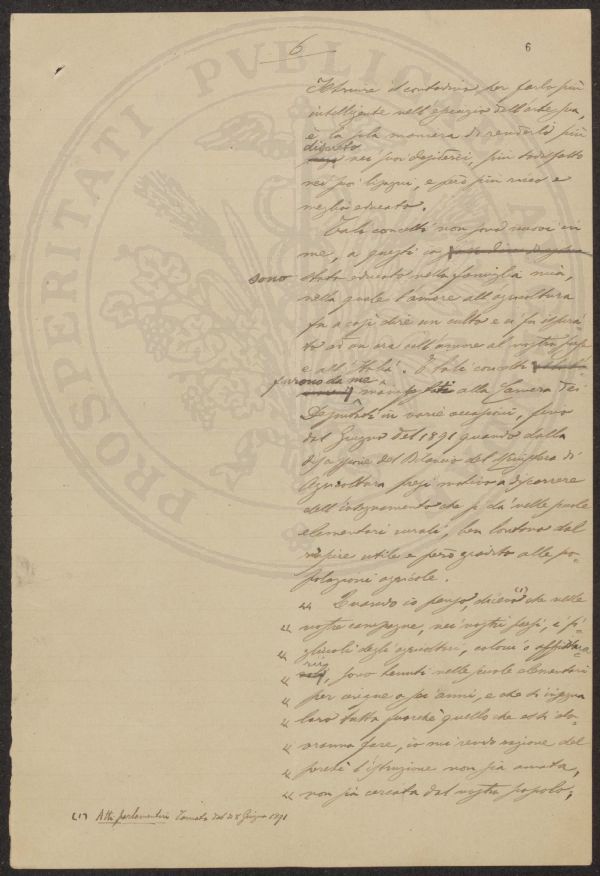 6
6
Istruire il contadino per farlo più
intelligente nell'esercizio dell'arte sua,
è la sola maniera di renderlo più
discreto
nei suoi desiderii, più sodisfatto
nei suoi bisogni, e però più ricco e
meglio educato.
Tali concetti non sono nuovi in
me, a questi io
sono stato educato nella famiglia mia,
nella quale l'amore all'agricoltura
fu a così dire un culto e si fu ispirato
ad un'ora coll'amore al nostro paese
e all'Italia. E tali concetti
furono da me
manifestati alla Camera dei
Deputati in varie occasioni, fino
dal Giugno del 1891 quando dalla
discussione del Bilancio del Ministero di
Agricoltura presi motivo a discorrere
dell'insegnamento che si dà nelle scuole
elementari rurali, ben lontano dal
riuscire utile e però gradito alle po-
polazioni agricole.
" Quando io penso, dicevo (1) che nelle
" nostre campagne, nei nostri paesi, i fi-
" gliuoli degli agricoltori, coloni o affittua-
" rii, sono tenuti nelle scuole elementari
" per cinque o sei anni, e che si insegna
" loro tutto fuorchè quello che essi do-
" vranno fare, io mi rendo ragione del
" perchè l'istruzione non sia amata,
" non sia cercata dal nostro popolo;
(1) Atti parlamentari Tornata del Giugno 1891
PROSPERITATI PUBLICAE